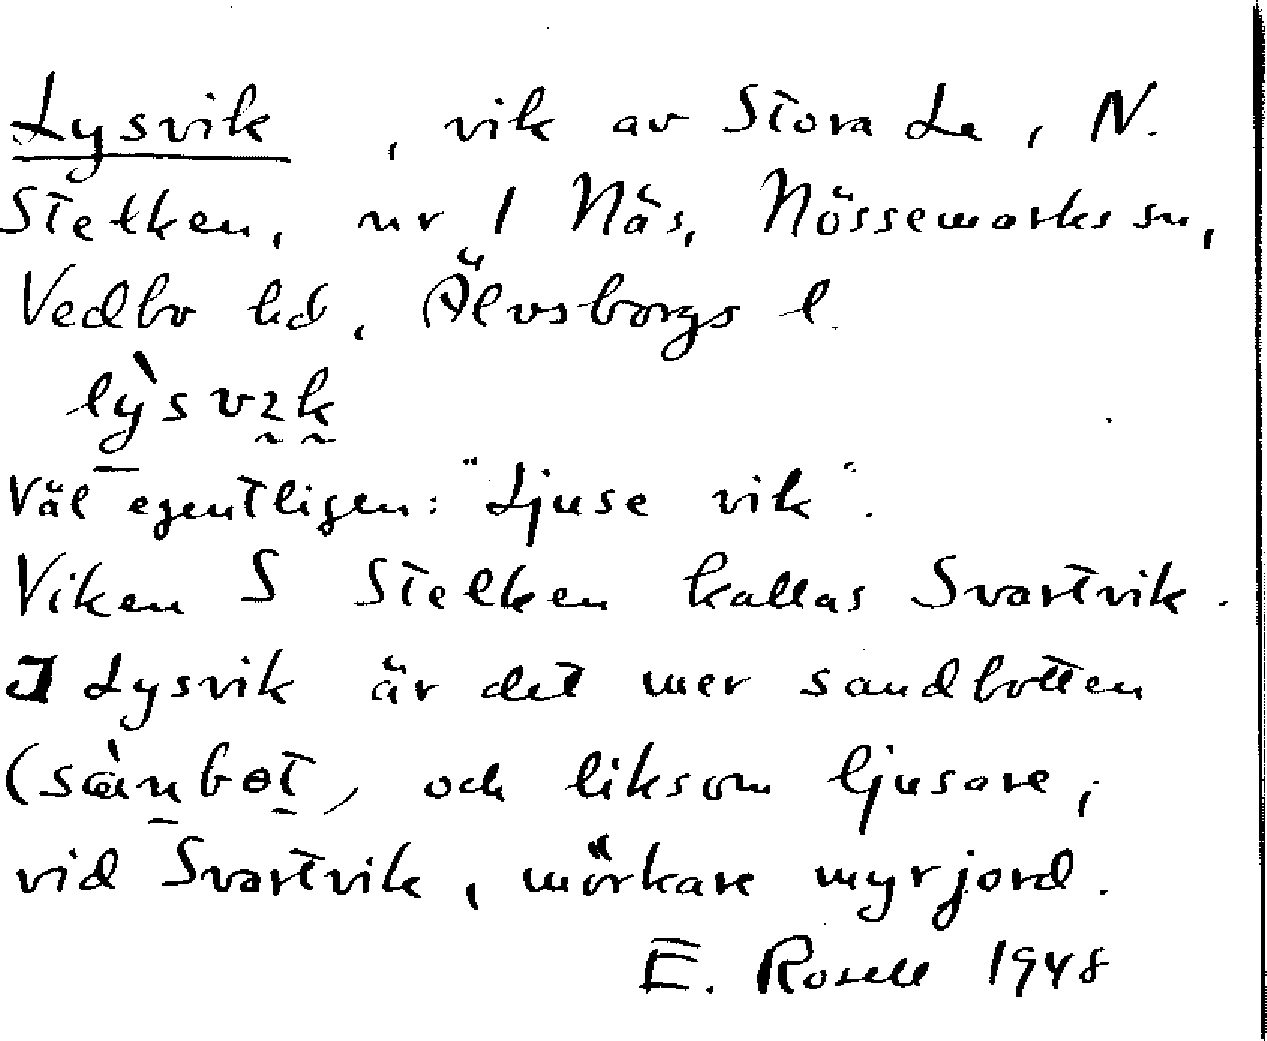 Lysvik, vik av Stora Le, N.
Stelken, nr 1 Näs, Nössemarks sn,
Vedbo hd, Älvsborgs l.
lỳsvɪk
Väl egentligen: "Ljuse vik".
Viken S Stelken kallas Svartvik.
I Lysvik är det mer sandbotten
(sànbɵt, och liksom ljusare,
vid Svartvik, mörkare myrjord.
E. Rosell 1948